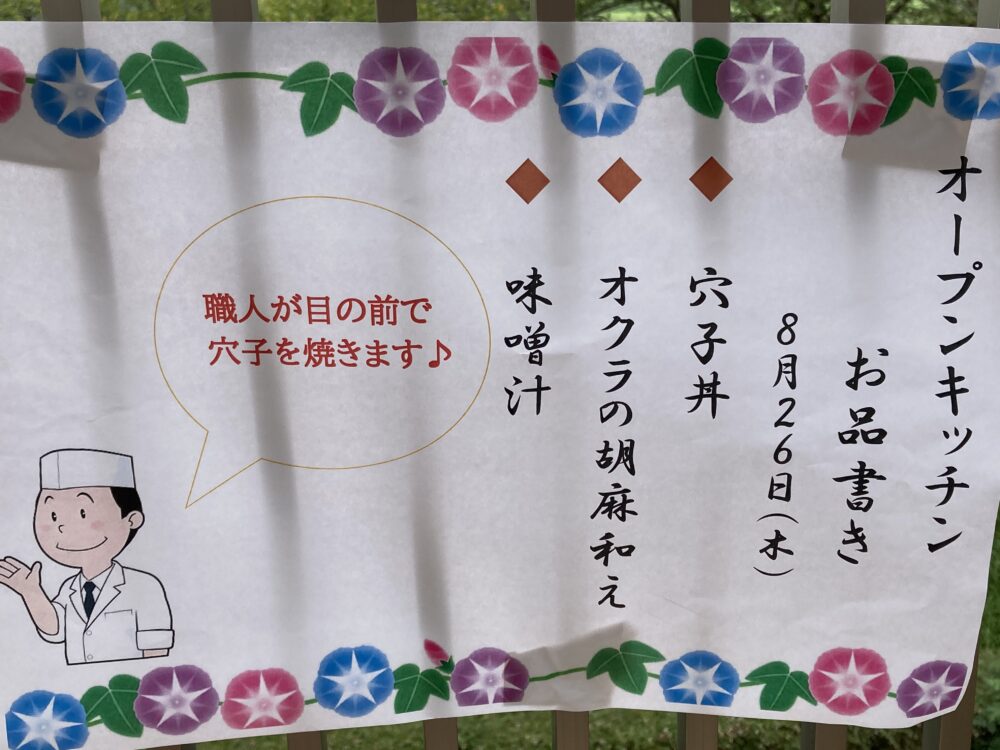 オープンキッチン
お品書き
8月26日(木)
◆ 穴子丼
◆ オクラの胡麻和え
◆ 味噌汁
職人が目の前で
穴子を焼きます♪